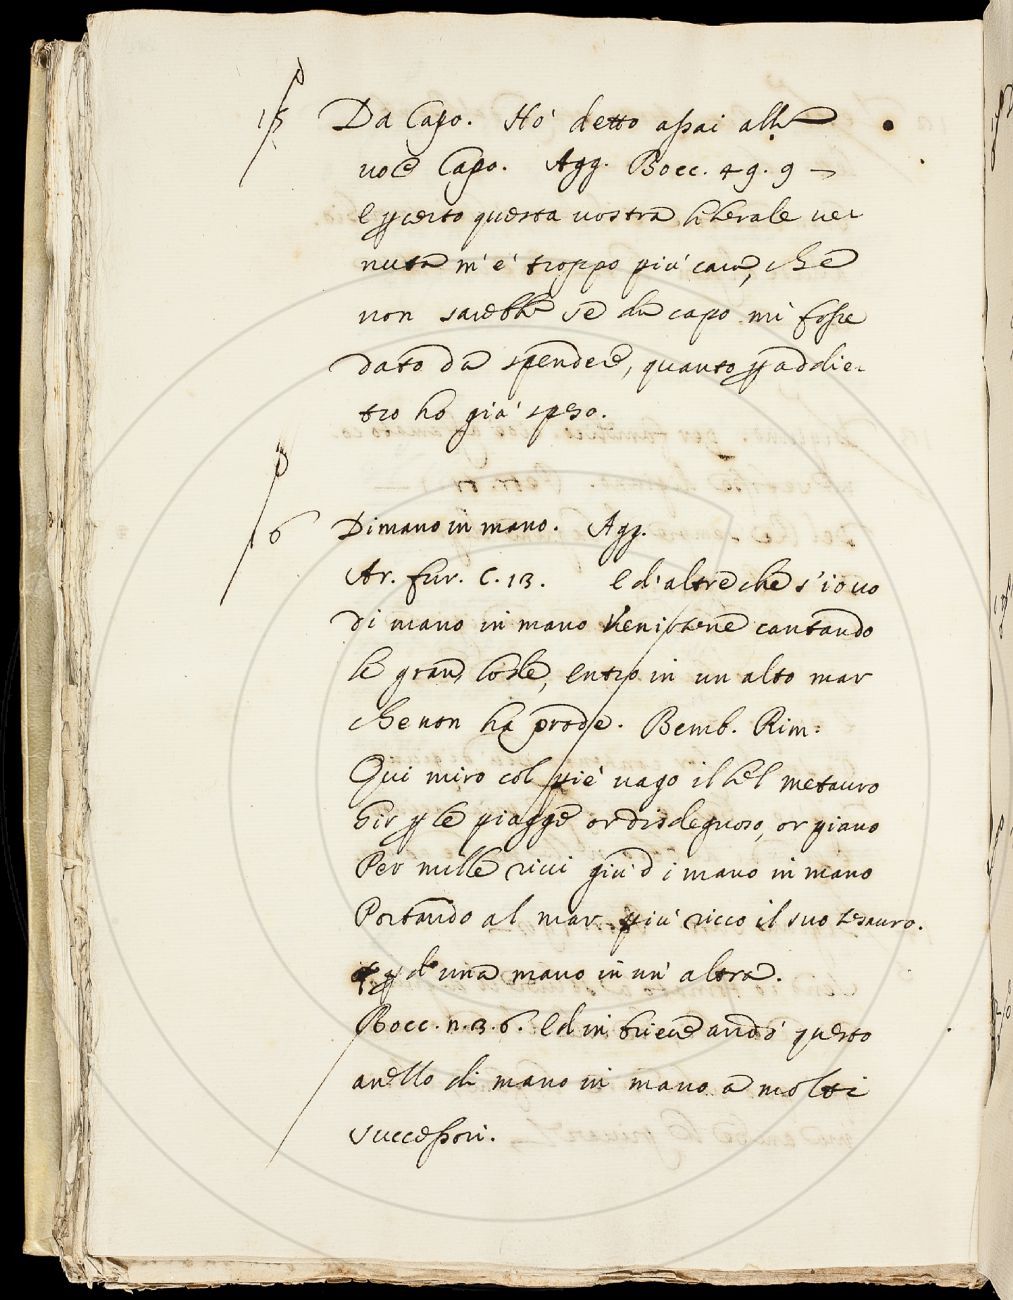 15 Da Capo. Hò detto assai alla
uoce Capo. Agg. Bocc. 49. 9
E p certo questa uostra liberale ue-
nuta m'è troppo più cara, che
non sarebbe se da capo mi fosse
dato da spendere, quanto p addie-
tro ho già speso.
16 Di mano in mano. Agg.
Ar. fur. C. 13. E d'altre che s'io uo
di mano in mano Venirtene cantando
le gran lode, entro in un alto mar
che non ha prode. Bemb. Rim:
Qui miro col piè uago il bel metauro
Gir p le piagge or disdegnoso, or piano
Per mille riui giù di mano in mano
Portando al mar più ricco il suo tesauro.
p d'una mano in un' altra.
Bocc. n. 3. 6. Ed in brieue andò questo
anello di mano in mano a molti
successori.